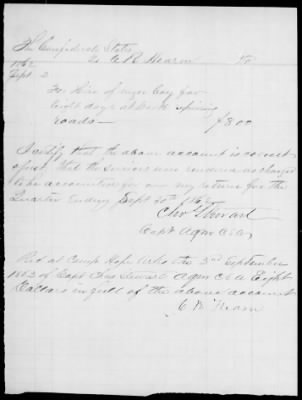 The Confederate States
To C. B. Hearn Dr
1862
Sept 2
For Hire of negro boy for
eight days at work repairing
roads — $8.00
I certify that the above account is correct
& just, that the services were rendered as charged
to be accounted for on my return for the
Quarter Ending Sept 30th 1862
Chas Stewart
Capt & AQM CSA
Recd at Camp Hope Arks the 2nd September
1862 of Capt Chas Stewart AQM CSA Eight
Dollars in full of the above account
C. B. Hearn